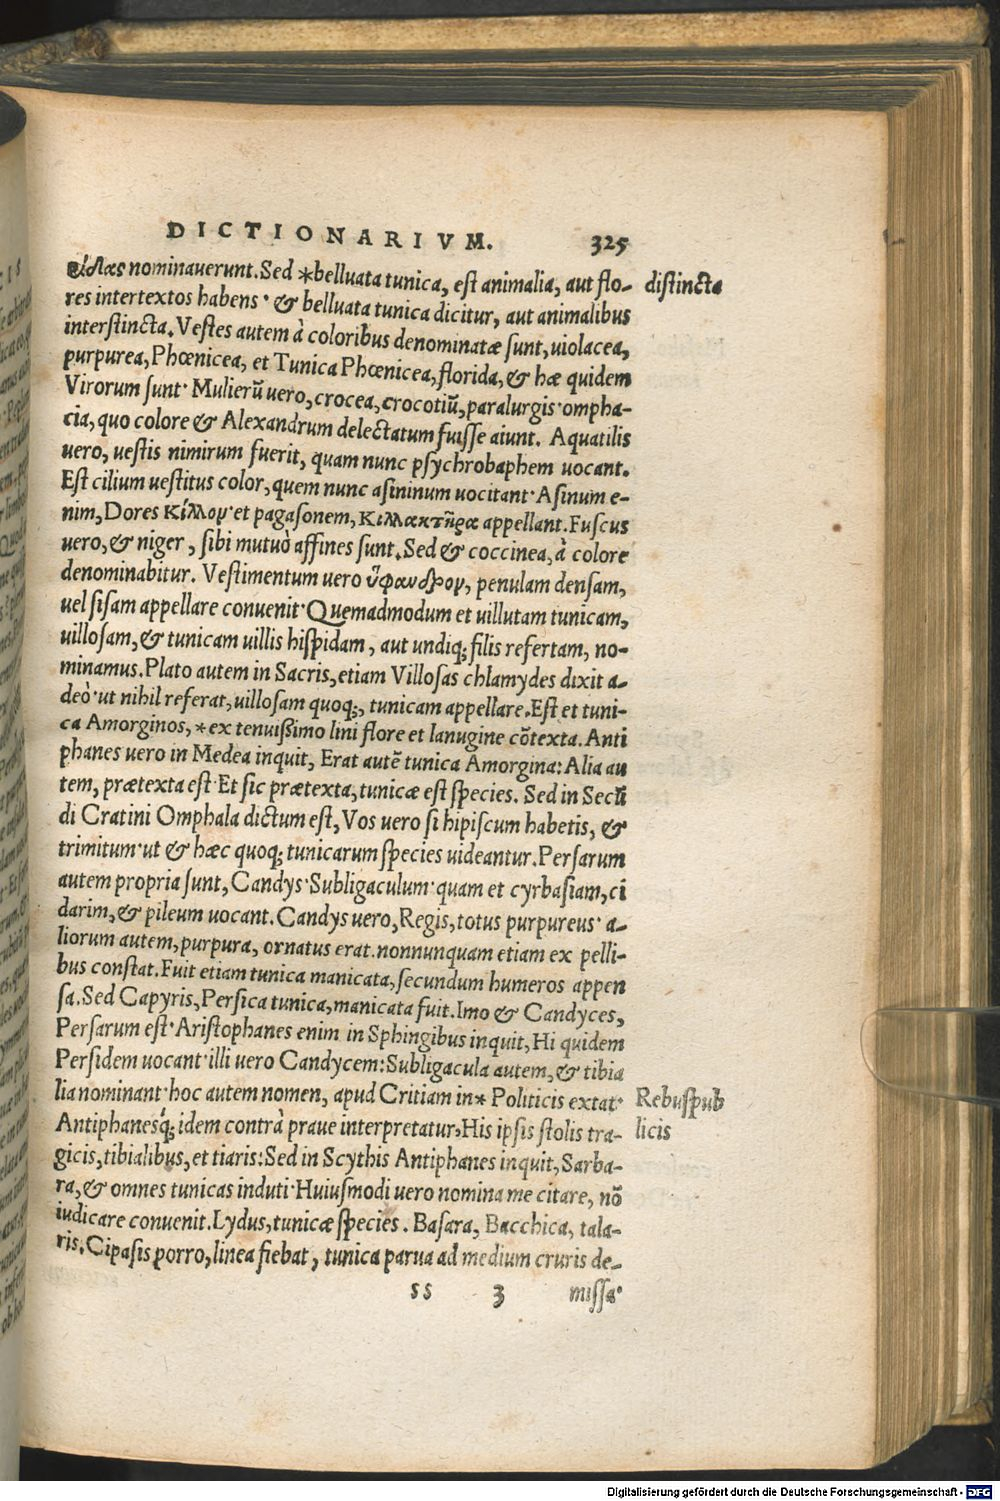 DICTIONARIVM. 325
είλας nominauerunt. Sed *belluata tunica, est animalia, aut flo- distincta
res intertextos habens· & belluata tunica dicitur, aut animalibus
interstincta. Vestes autem à coloribus denominatæ sunt, uiolacea,
purpurea, Phœnicea, et Tunica Phœnicea, florida, & hæ quidem
Virorum sunt· Mulierũ uero, crocea, crocotiũ, paralurgis· ompha-
cia, quo colore & Alexandrum delectatum fuisse aiunt. Aquatilis
uero, uestis nimirum fuerit, quam nunc psychrobaphem uocant.
Est cilium uestitus color, quem nunc asininum uocitant· Asinum e-
nim, Dores κίλλον· et pagasonem, κιλλακτῆρα appellant. Fuscus
uero, & niger, sibi mutuò affines sunt. Sed & coccinea, à colore
denominabitur. Vestimentum uero ὕφανδρον, penulam densam,
uel sisam appellare conuenit· Quemadmodum et uillutam tunicam,
uillosam, & tunicam uillis hispidam, aut undiq; filis refertam, no-
minamus. Plato autem in Sacris, etiam Villosas chlamydes dixit a-
deò· ut nihil referat, uillosam quoq;, tunicam appellare. Est et tuni-
ca Amorginos, *ex tenuissimo lini flore et lanugine cõtexta. Anti
phanes uero in Medea inquit, Erat autẽ tunica Amorgina: Alia au
tem, prætexta est· Et sic prætexta, tunicæ est species. Sed in Secũ
di Cratini Omphala dictum est, Vos uero si hipiscum habetis, &
trimitum· ut & hæc quoq; tunicarum species uideantur. Persarum
autem propria sunt, Candys· Subligaculum· quam et cyrbasiam, ci
darim, & pileum uocant. Candys uero, Regis, totus purpureus· a-
liorum autem, purpura, ornatus erat. nonnunquam etiam ex pelli-
bus constat. Fuit etiam tunica manicata, secundum humeros appen
sa. Sed Capyris, Persica tunica, manicata fuit. Imo & Candyces,
Persarum est· Aristophanes enim in Sphingibus inquit, Hi quidem
Persidem uocant· illi uero Candycem: Subligacula autem, & tibia
lia nominant· hoc autem nomen, apud Critiam in* Politicis extat· Rebuspub
Antiphanesq́; idem contrà praue interpretatur, His ipsis stolis tra- licis
gicis, tibialibus, et tiaris: Sed in Scythis Antiphanes inquit, Sarba-
ra, & omnes tunicas induti· Huiusmodi uero nomina me citare, nõ
iudicare conuenit. Lydus, tunicæ species. Basara, Bacchica, tala-
ris. Cipasis porro, linea fiebat, tunica parua ad medium cruris de-
SS 3 missa·
Digitalisierung gefördert durch die Deutsche Forschungsgemeinschaft - DFG